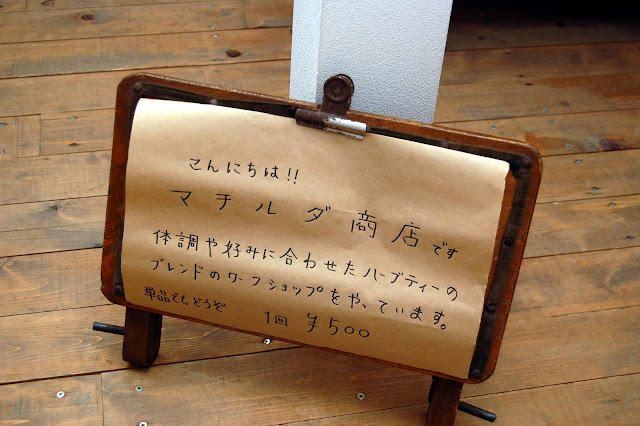 こんにちは!!
マチルダ商店です
体調や好みに合わせたハーブティーの
ブレンドのワークショップをやっています。
単品でもどうぞ 1回 ¥500